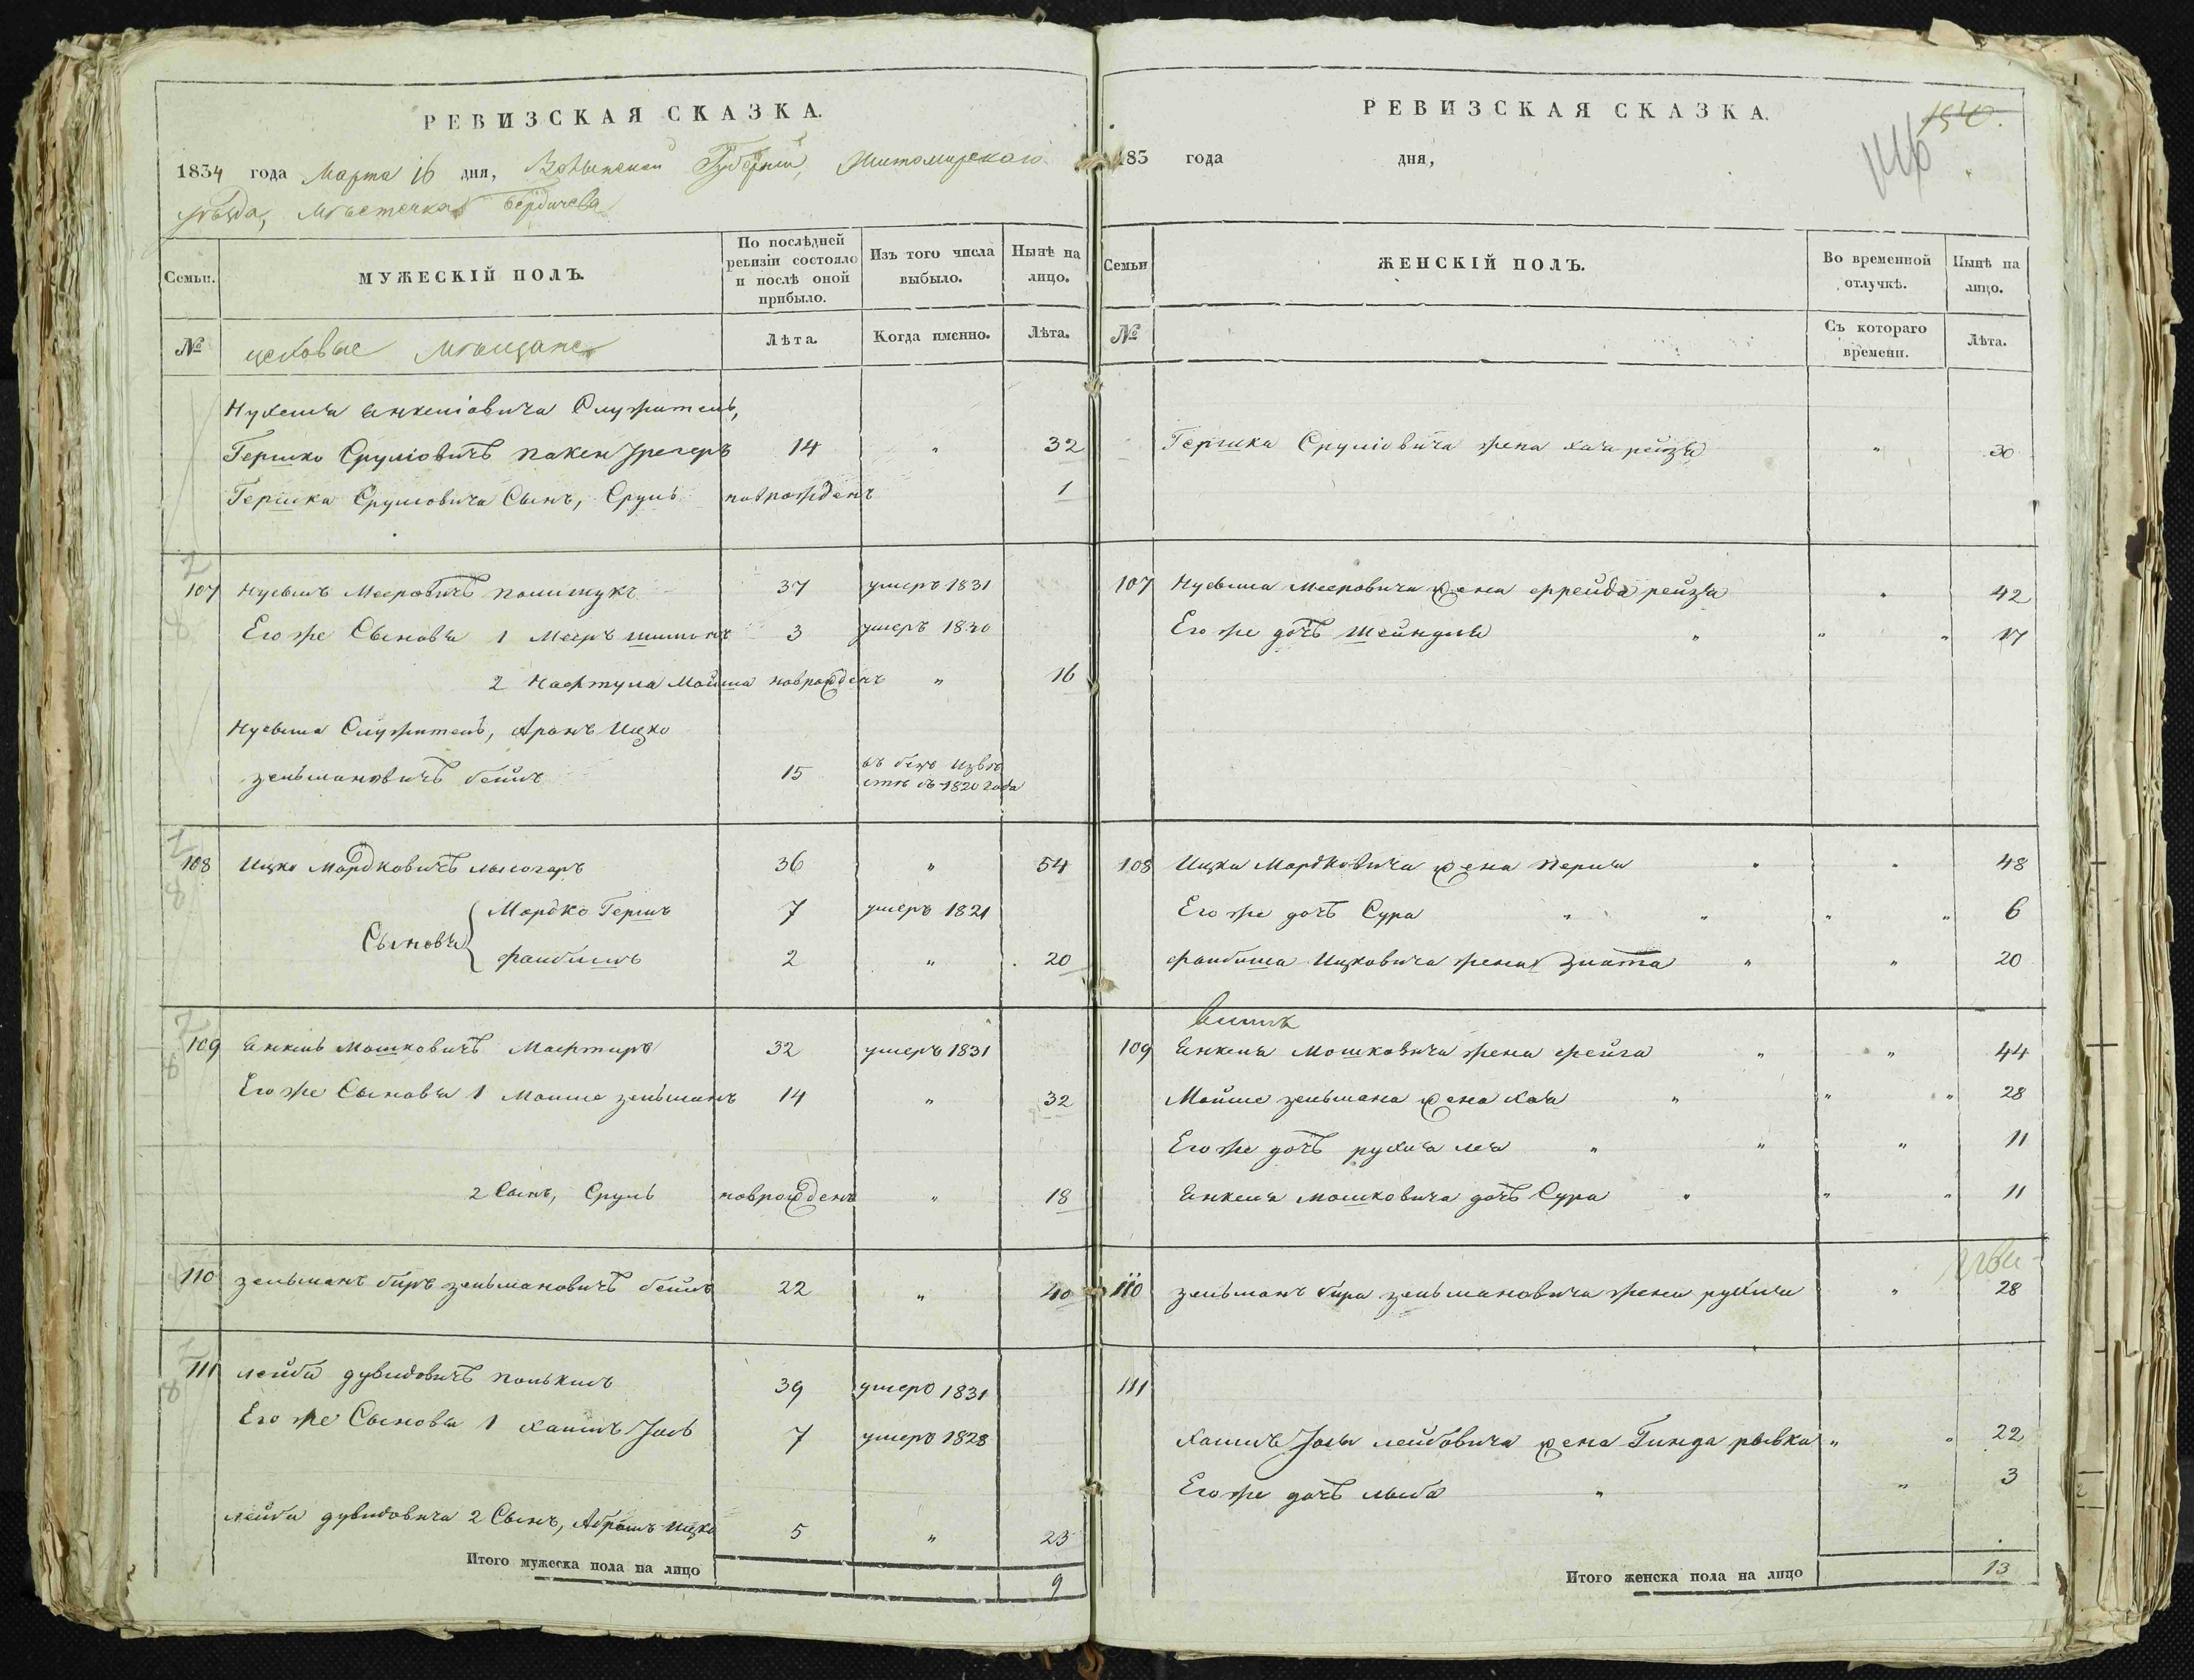 РЕВИЗСКАЯ СКАЗКА.
1834 года Марта 16 дня, Волынской Губернии, Житомирскаго
уѣзда, Мѣстечка Бердичева
Семьи.
МУЖЕСКІЙ ПОЛЪ.
По послѣдней ревизіи состояло и послѣ оной прибыло.
Изъ того числа выбыло.
Нынѣ на лицо.
№
цеховые Мѣщане
Лѣта.
Когда именно.
Лѣта.
Нухема Янкеліовича Служитель,
Гершко Сруліовичъ 14 " 32
Гершка Сруліовича Сынъ, Сруль новрожденъ 1
107 Нусымъ Мееровичъ полищукъ 37 умеръ 1831
Его же Сыновья 1 Мееръ шимонъ 3 умеръ 1830
2 Нафтула Мойша новрожденъ " 16
Нусыма Служитель, Аронъ Ицко
зельмановичъ 15 въ безъ Извѣ
стнѣ съ 1820 года
108 Ицко Мордковичъ 36 " 54
Сыновья
Мордко Гершъ 7 умеръ 1821
файбишъ 2 " 20
109 Янкель Мошковичъ 32 умеръ 1831
Его же Сыновья 1 Мойше зельманъ 14 " 32
2 Сынъ, Сруль новрожденъ " 18
110 зельманъ беръ зельмановичъ 22 " 40
111 лейба дувидовичъ 39 умеръ 1831
Его же Сыновья 1 хаимъ Јось 7 умеръ 1828
лейба дувидовича 2 Сынъ, Абрамъ Ицко 5 " 23
Итого мужеска пола на лицо 9
РЕВИЗСКАЯ СКАЗКА.
183 года дня,
Семьи
ЖЕНСКІЙ ПОЛЪ.
Во временной отлучкѣ.
Нынѣ на лицо.
№
Съ котораго времени.
Лѣта.
Гершка Сруліовича жена хая рейзя " 30
107 Нусыма Мееровича жена фрейда рейзя " 42
Его же дочь Шейндля " " " 17
108 Ицка Мордковича жена Перля " " 48
Его же дочь Сура " " " " 6
файбиша Ицковича жена Злата " " 20
109 Янкеля Мошковича жена фейга " " 44
Мойше зельмана жена хая " " " 28
Его же дочь рухля лея " " " 11
Янкеля мошковича дочь Сура " " " 11
110 зельманъ бера зельмановича жена рухля " 28
111
хаимъ Јося лейбовича жена Гинда рывка " " 22
Его же дочь лыба " " 3
Итого женска пола на лицо 13